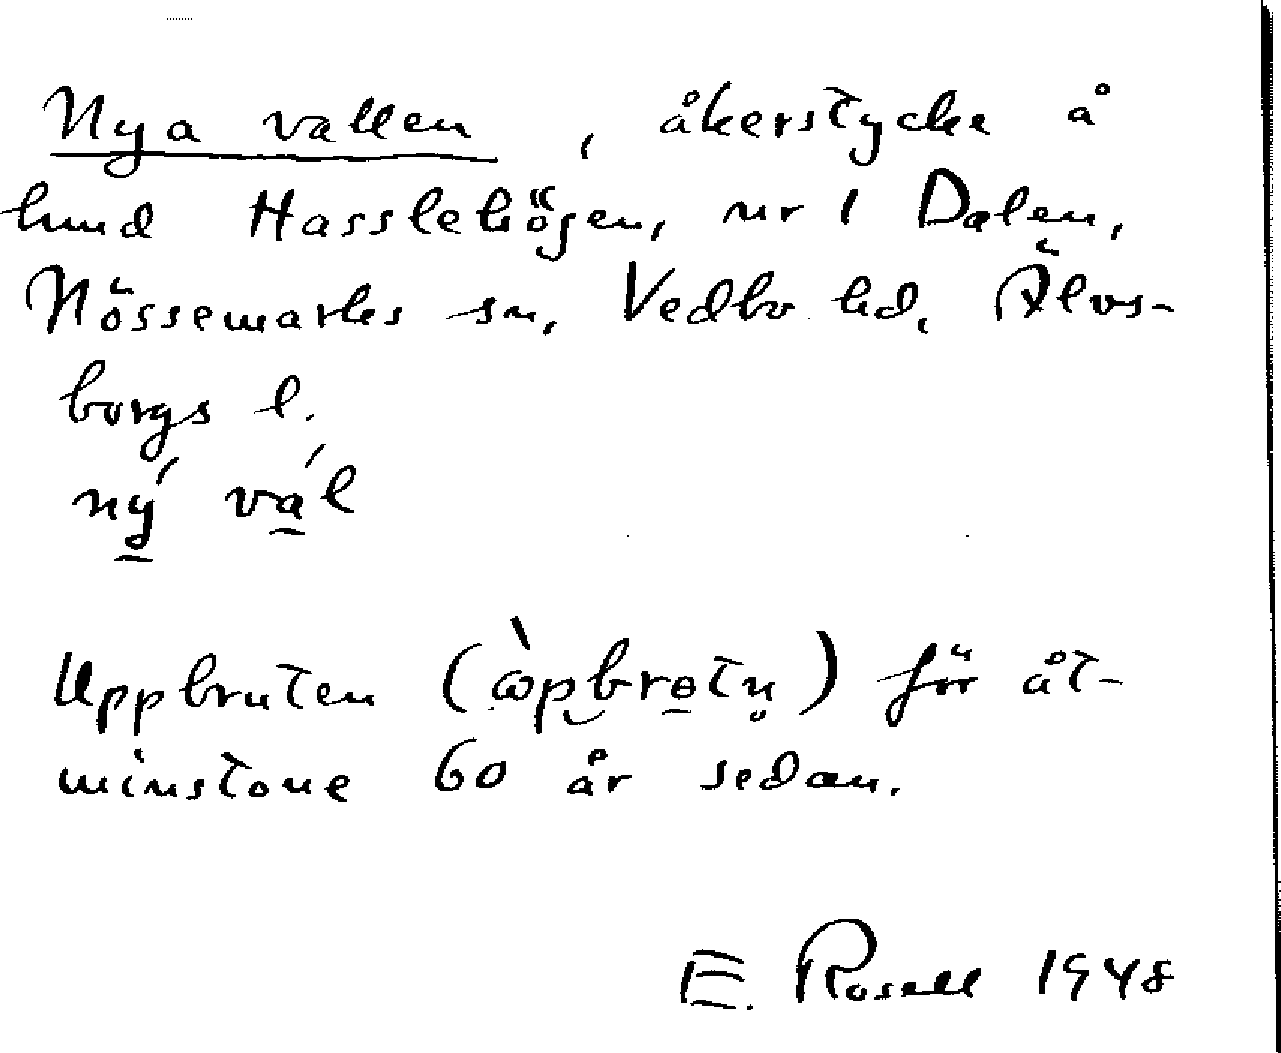 Nya vallen, åkerstycke å
lund Hasslehögen, nr 1 Dalen,
Nössemarks sn, Vedbo hd, Älvs-
borgs l.
ný vál
Uppbruten (ὼpbrɵtn̥) för åt-
minstone 60 år sedan.
E. Rosell 1948